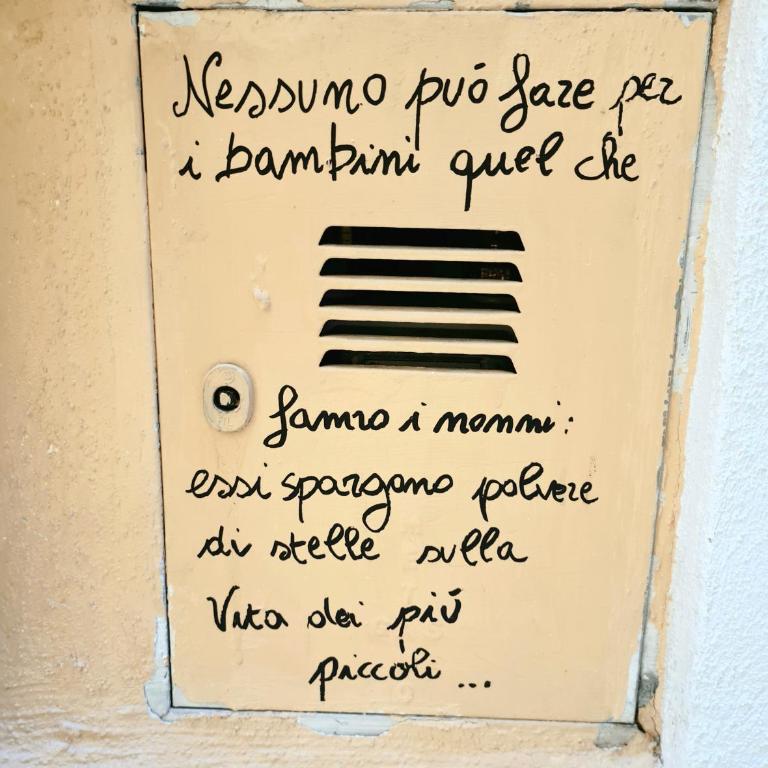 Nessuno puó fare per
i bambini quel che
fanno i nonni:
essi spargono polvere
di stelle sulla
Vita dei piú
piccoli...